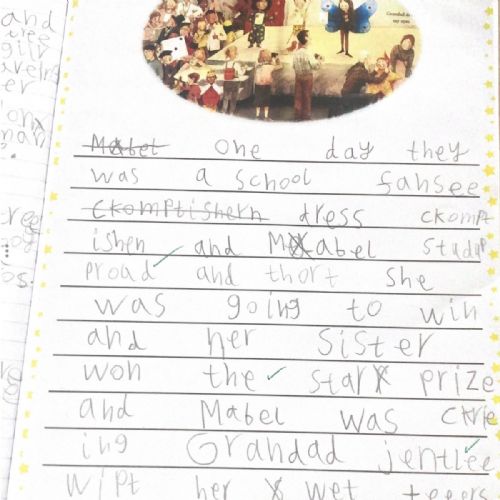 Grandad in
my eyes.
and
er
Mabel one day they
was a school fansee
ckomptishern dress ckompt
ishen and Mabel stud up
proad and thort she
was going to win
and her sister
won the star prize
and Mabel was crie
ing Grandad jentlee
wipt her wet teers